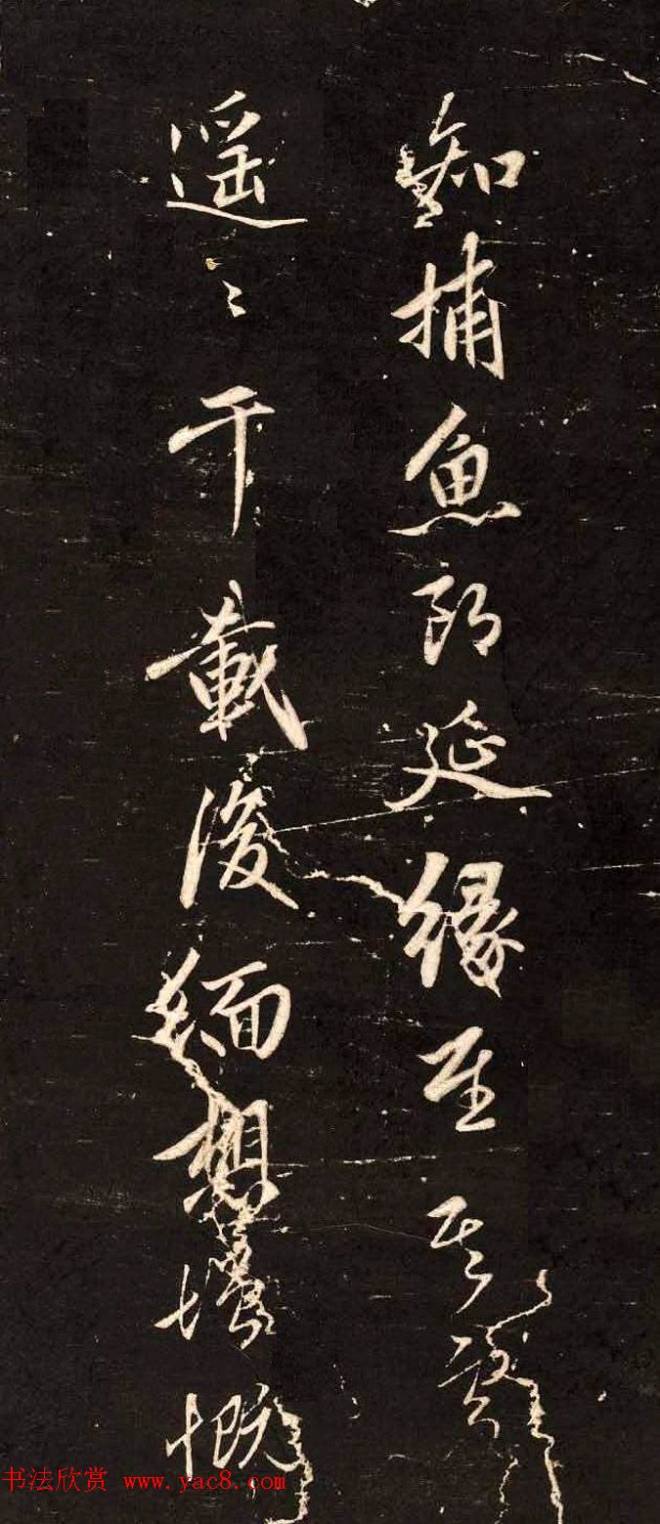 知捕魚郎延緣至其
遥〻千載後緬想慨
書法欣赏 www.yac8.com